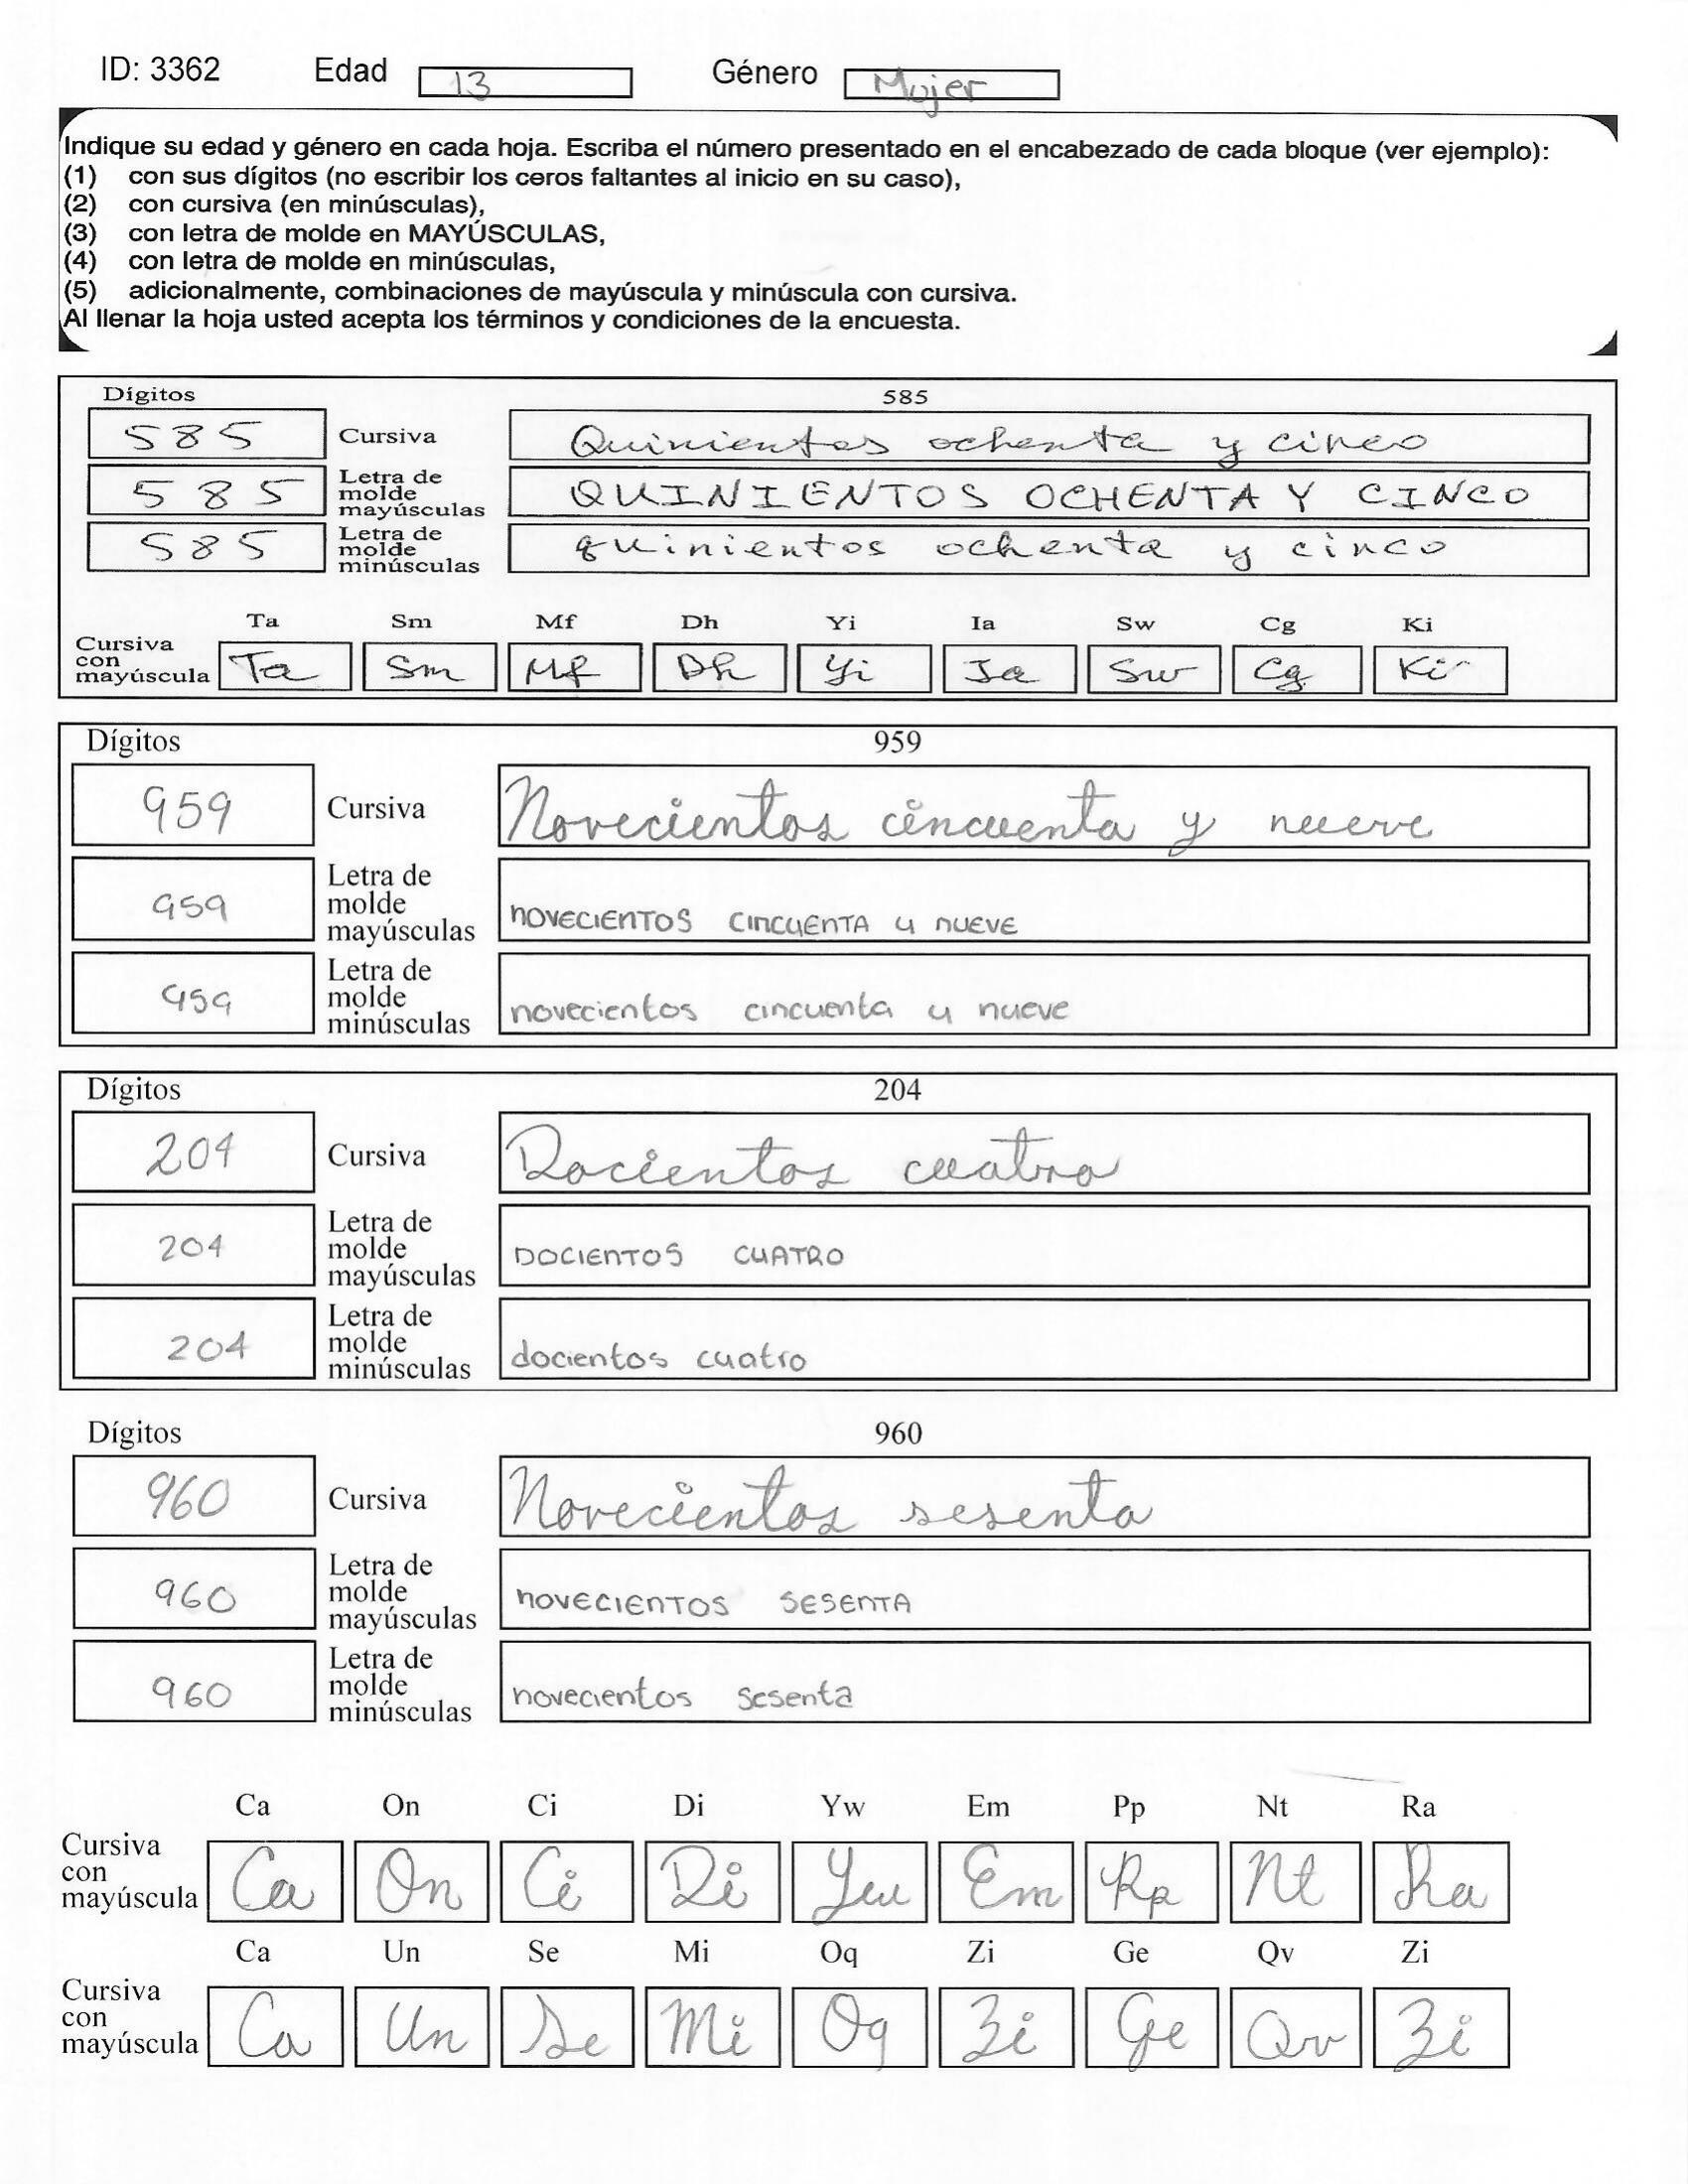 ID: 3362 Edad 13 Género Mujer
Indique su edad y género en cada hoja. Escriba el número presentado en el encabezado de cada bloque (ver ejemplo):
(1) con sus dígitos (no escribir los ceros faltantes al inicio en su caso),
(2) con cursiva (en minúsculas),
(3) con letra de molde en MAYÚSCULAS,
(4) con letra de molde en minúsculas,
(5) adicionalmente, combinaciones de mayúscula y minúscula con cursiva.
Al llenar la hoja usted acepta los términos y condiciones de la encuesta.
Dígitos 585
585 Cursiva Quinientos ochenta y cinco
585 Letra de molde mayúsculas QUINIENTOS OCHENTA Y CINCO
585 Letra de molde minúsculas quinientos ochenta y cinco
Ta Sm Mf Dh Yi Ia Sw Cg Ki
Cursiva con mayúscula Ta Sm Mf Dh Yi Ia Sw Cg Ki
Dígitos 959
959 Cursiva Novecientos cincuenta y nueve
959 Letra de molde mayúsculas NOVECIENTOS CINCUENTA y NUEVE
959 Letra de molde minúsculas novecientos cincuenta y nueve
Dígitos 204
204 Cursiva Docientos cuatro
204 Letra de molde mayúsculas DOCIENTOS CUATRO
204 Letra de molde minúsculas docientos cuatro
Dígitos 960
960 Cursiva Novecientos sesenta
960 Letra de molde mayúsculas NOVECIENTOS SESENTA
960 Letra de molde minúsculas novecientos sesenta
Ca On Ci Di Yw Em Pp Nt Ra
Cursiva con mayúscula Ca On Ci Di Yw Em Pp Nt Ra
Ca Un Se Mi Oq Zi Ge Qv Zi
Cursiva con mayúscula Ca Un Se Mi Oq Zi Ge Qv Zi